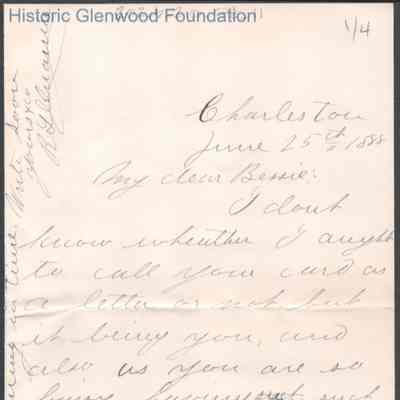 Historic Glenwood Foundation
1/4
Charleston
June 25th 1888
My dear Bessie:
I dont
know wheather I aught
to call your card as
a letter or not but
it being you, and
also as you are so
busy having
time. Write soon
yours